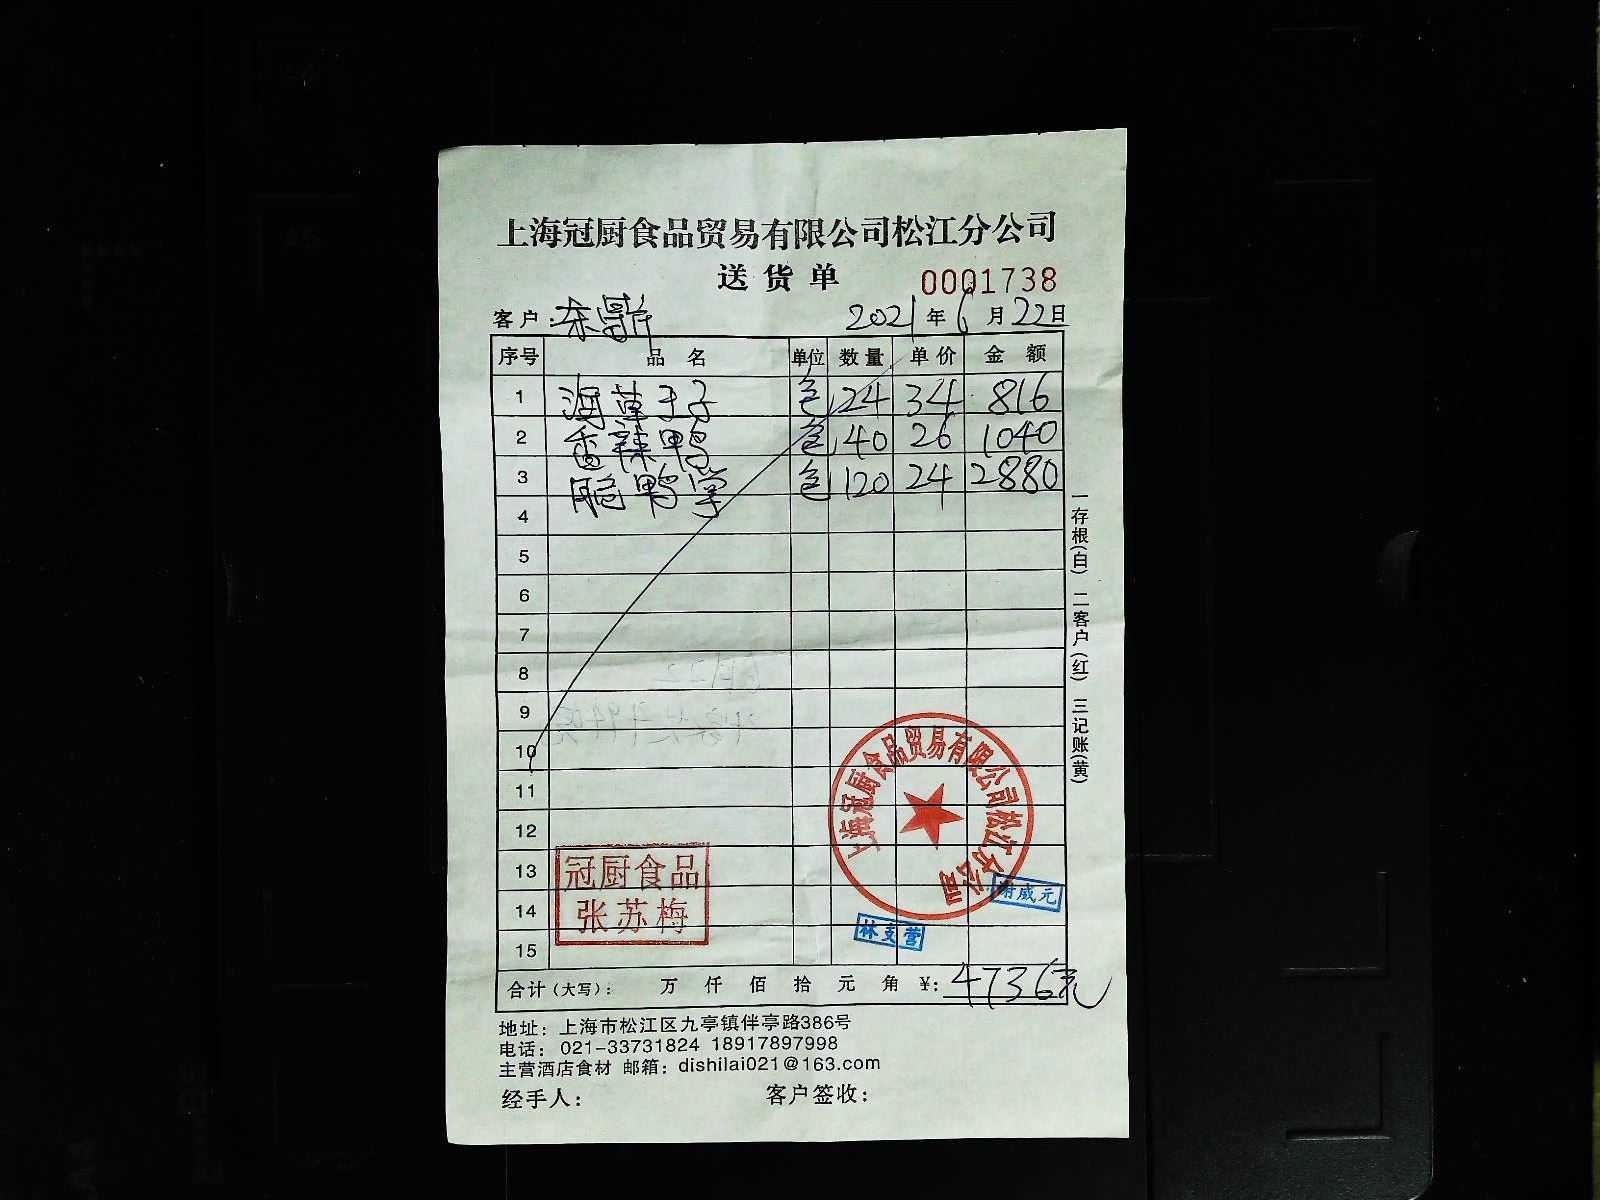 上海冠厨食品贸易有限公司松江分公司
送货单 0001738
客户: 2021年6月22日
序号 品名 单位 数量 单价 金额
1 包 24 34 816
2 香辣鸭 包 40 26 1040
3 脆鸭掌 包 120 24 2880
4
5
6
7
8
9
10
11
12
13
14
15
一存根(白) 二客户(红) 三记账(黄)
上海冠厨食品贸易有限公司松江分公司
冠厨食品
张苏梅
威元
林支营
合计(大写): 万 仟 佰 拾 元 角 ¥: 4736元
地址: 上海市松江区九亭镇伴亭路386号
电话: 021-33731824 18917897998
主营酒店食材 邮箱: dishilai021@163.com
经手人: 客户签收: